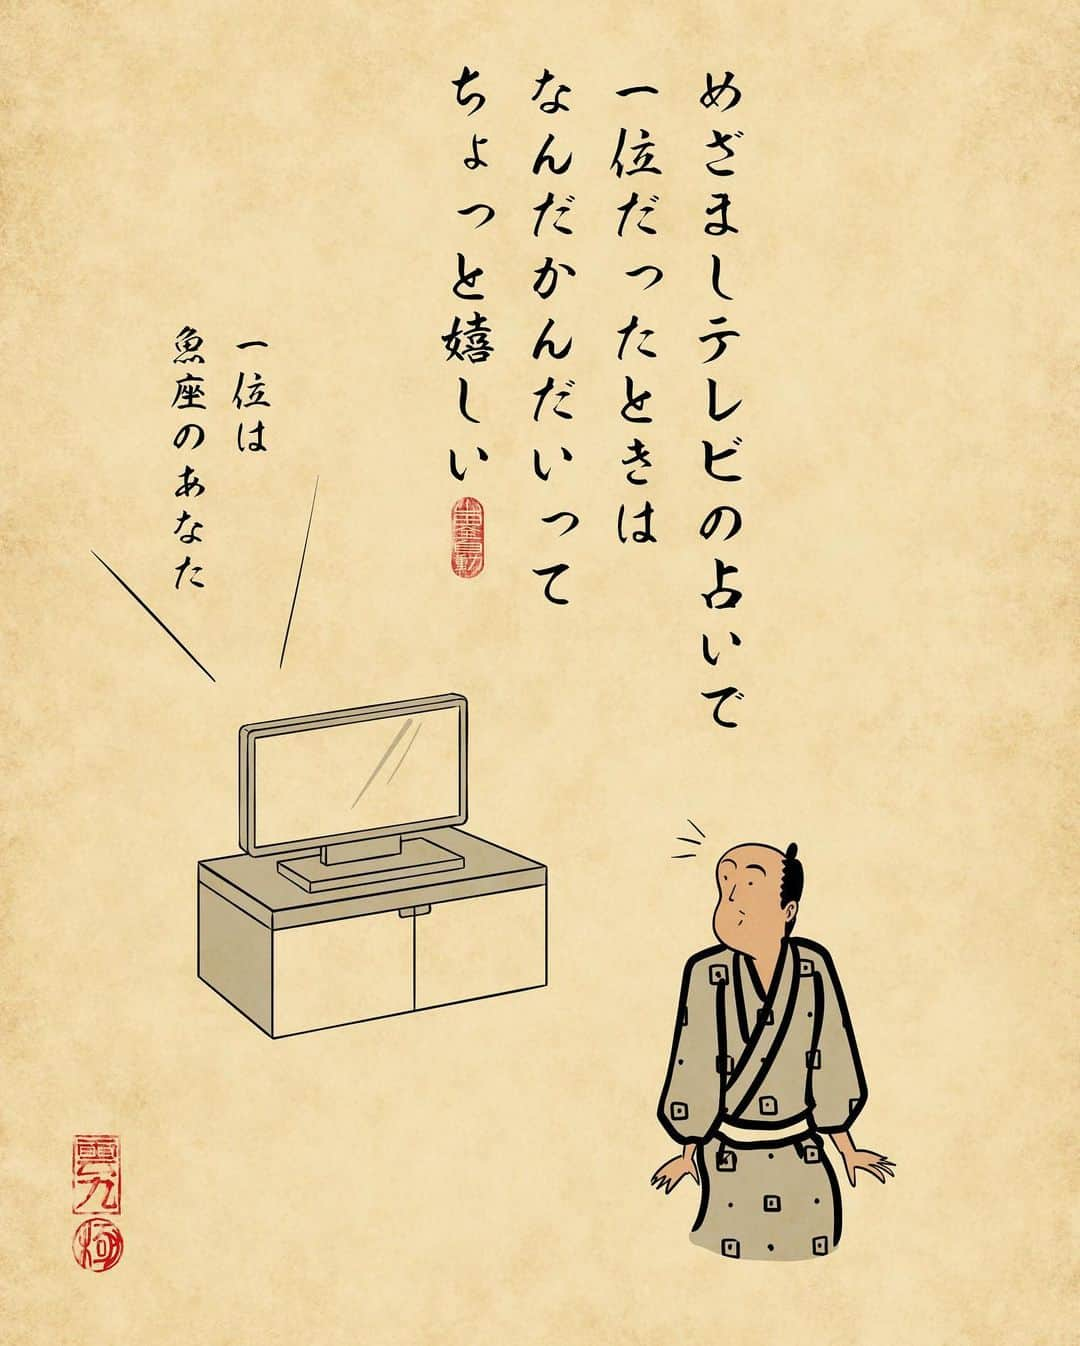 めざましテレビの占いで
一位だったときは
なんだかんだいって
ちょっと嬉しい
一位は
魚座のあなた